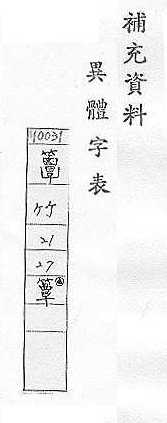 補充資料
異體字表
10031
竹
21
27